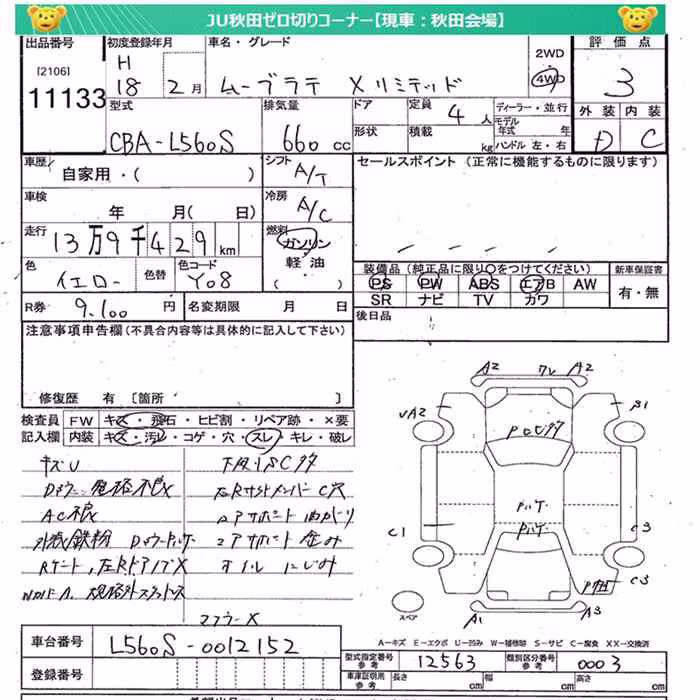 JU秋田ゼロ切りコーナー【現車：秋田会場】
出品番号
[2106]
11133
初度登録年月
H
18 2 月
車名・グレード
ムーブラテ Xリミテッド
2WD
4WD
評価点
3
外装 内装
D C
型式
CBA-L560S
排気量
660 cc
ドア
形状
定員
4 人
積載
kg
ディーラー・並行
モデル
年式 年
ハンドル 左・右
車歴
自家用・( )
シフト
A/T
セールスポイント (正常に機能するものに限ります)
車検
年 月( 日)
冷房
A/C
走行
13万9千429km
燃料
ガソリン
軽油
( )
色
イエロー
色替
色コード
Y08
R券
9.100 円
名変期限 月 日
装備品(純正品に限り○をつけてください)
PS PW ABS エアB AW
SR ナビ TV カワ
新車保証書
有・無
後日品
注意事項申告欄(不具合内容等は具体的に記入して下さい)
修復歴 有 [箇所 ]
検査員 FW キズ・飛石・ヒビ割・リペア跡・×要
記入欄 内装 キズ・汚レ・コゲ・穴・スレ・キレ・破レ
キズU
AC不良
下廻りSCサ
Rゲート,左Rドアノブ×
オイルにじみ
マフラー×
A2
A2
A2
B1
C1
C3
C3
A1
A3
スペア
A-キズ E-エクボ U-凹み W-補修跡 S-サビ C-腐食 XX-交換済
車台番号
L560S-0012152
登録番号
型式指定番号
参考
12563
類別区分番号
参考
0003
車庫証明用
参考
長さ cm 幅 cm 高さ cm